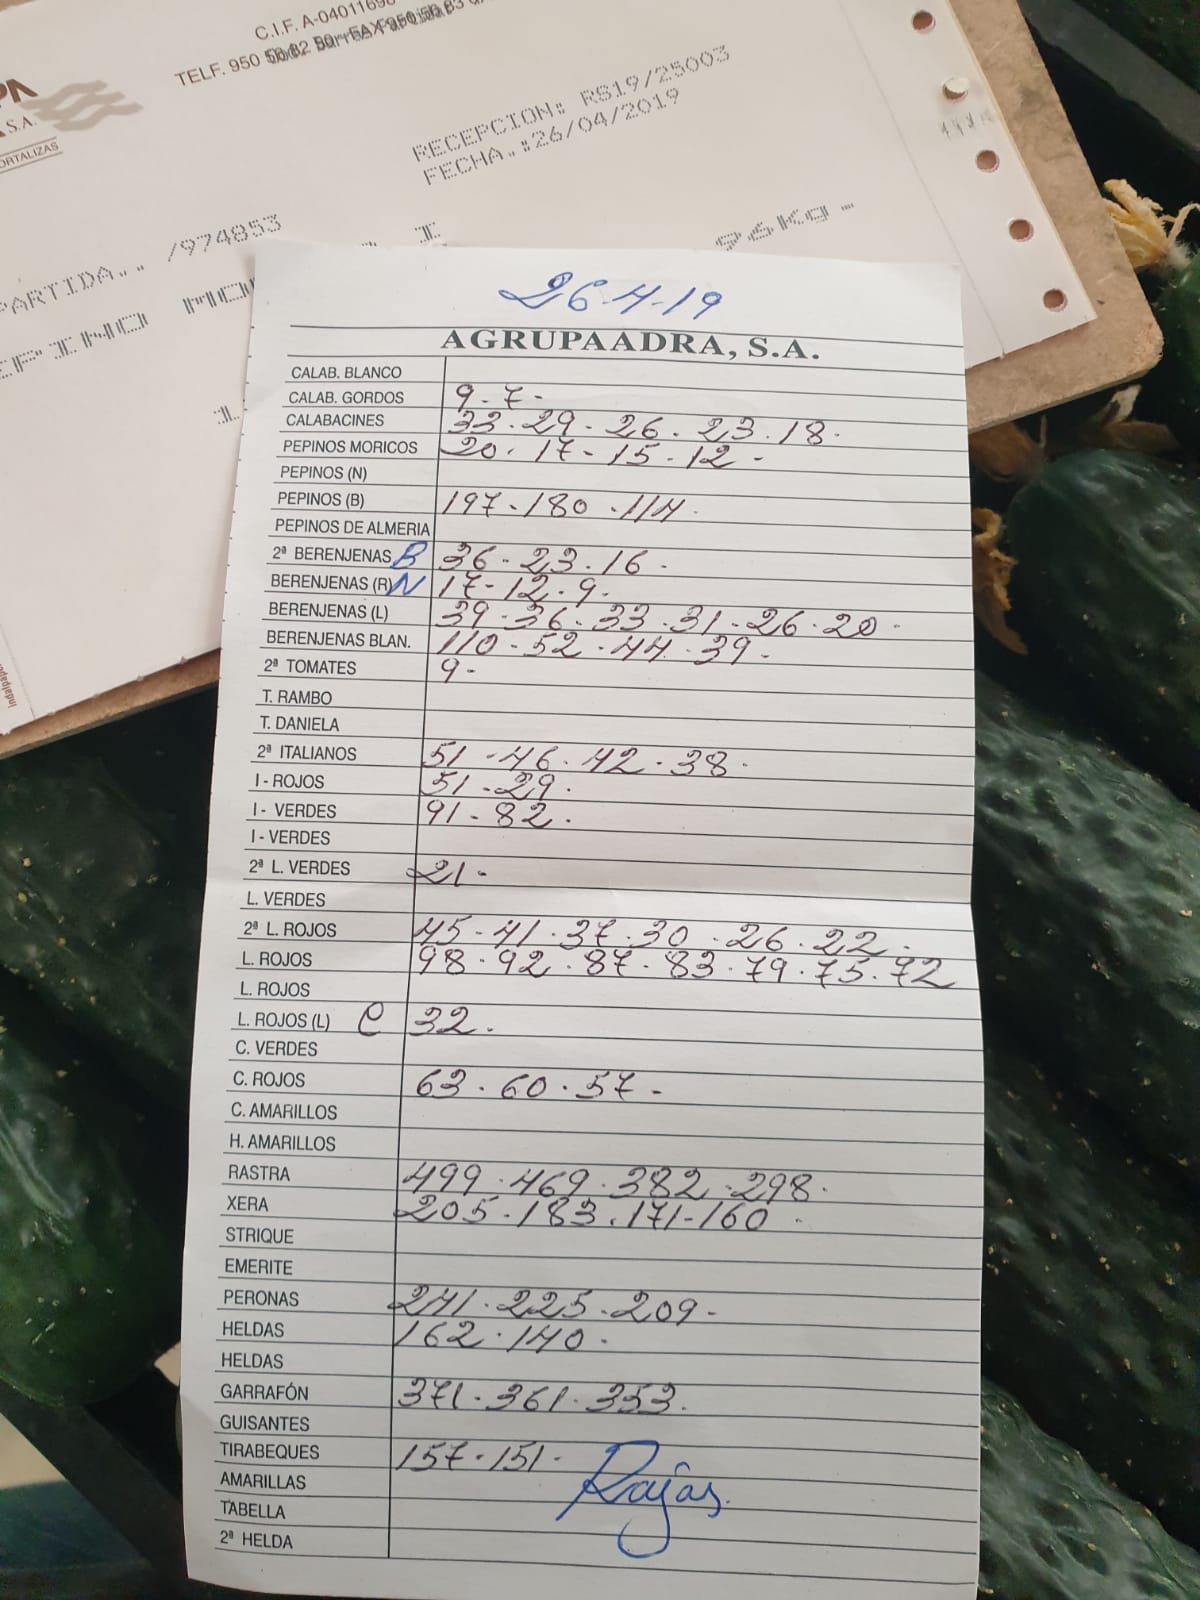 C.I.F. A-04011690
TELF. 950 56 82 50 - FAX 950 56 83
PA
S.A.
ORTALIZAS
RECEPCION: RS19/25003
FECHA.:26/04/2019
PARTIDA.. /974853
EPINO MO
I
96Kg-
1.
indalpape
26-4-19
AGRUPAADRA, S.A.
CALAB. BLANCO
CALAB. GORDOS 9-7-
CALABACINES 33-29-26-23-18-
PEPINOS MORICOS 20-17-15-12-
PEPINOS (N)
PEPINOS (B) 197-180-114-
PEPINOS DE ALMERIA
2ª BERENJENAS B 36-23-16-
BERENJENAS (R) N 17-12-9-
BERENJENAS (L) 39-36-33-31-26-20-
BERENJENAS BLAN. 110-52-44-39-
2ª TOMATES 9-
T. RAMBO
T. DANIELA
2ª ITALIANOS 51-46-42-38-
I - ROJOS 51-29-
I - VERDES 91-82-
I - VERDES
2ª L. VERDES 21-
L. VERDES
2ª L. ROJOS 45-41-37-30-26-22-
L. ROJOS 98-92-87-83-79-75-72
L. ROJOS
L. ROJOS (L) C 32-
C. VERDES
C. ROJOS 63-60-57-
C. AMARILLOS
H. AMARILLOS
RASTRA 499-469-382-298-
XERA 205-183-171-160-
STRIQUE
EMERITE
PERONAS 241-225-209-
HELDAS 162-140-
HELDAS
GARRAFÓN 371-361-353-
GUISANTES
TIRABEQUES 157-151-
Rojas.
AMARILLAS
TABELLA
2ª HELDA